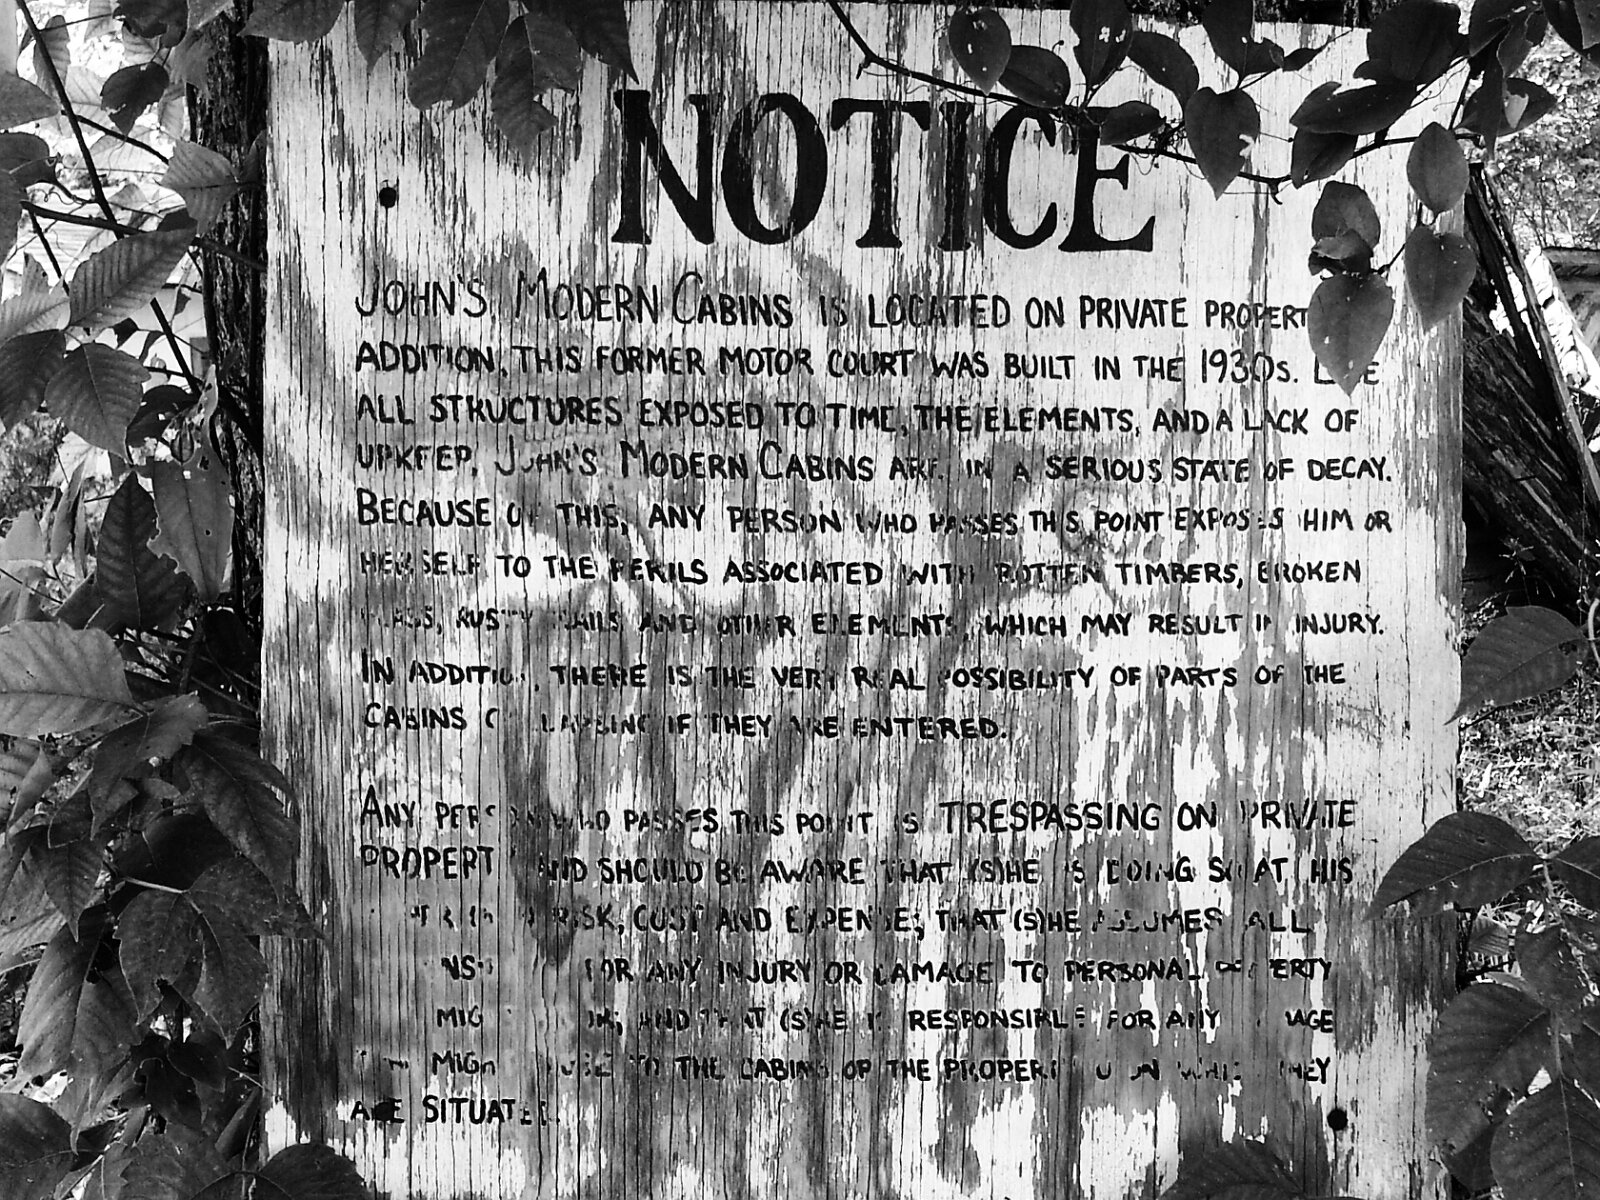 NOTICE
JOHN'S MODERN CABINS IS LOCATED ON PRIVATE PROPERT
ADDITION, THIS FORMER MOTOR COURT WAS BUILT IN THE 1930S. LIKE
ALL STRUCTURES EXPOSED TO TIME, THE ELEMENTS, AND A LACK OF
UPKEEP, JOHN'S MODERN CABINS ARE IN A SERIOUS STATE OF DECAY.
BECAUSE OF THIS, ANY PERSON WHO PASSES THIS POINT EXPOSES HIM OR
HERSELF TO THE PERILS ASSOCIATED WITH ROTTEN TIMBERS, BROKEN
GLASS, RUSTY NAILS AND OTHER ELEMENTS, WHICH MAY RESULT IN INJURY.
IN ADDITION, THERE IS THE VERY REAL POSSIBILITY OF PARTS OF THE
CABINS COLLAPSING IF THEY ARE ENTERED.
ANY PERSON WHO PASSES THIS POINT IS TRESPASSING ON PRIVATE
PROPERTY AND SHOULD BE AWARE THAT (S)HE IS DOING SO AT HIS
RISK, COST AND EXPENSE; THAT (S)HE ASSUMES ALL
FOR ANY INJURY OR DAMAGE TO PERSONAL PROPERTY
AND THAT (S)HE IS RESPONSIBLE FOR ANY DAMAGE
TO THE CABINS OR THE PROPERTY UPON WHICH THEY
ARE SITUATED.